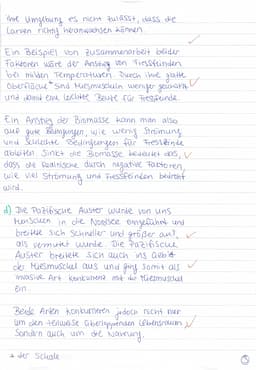 ihre Umgebung es nicht zulässt, dass die
Larven richtig heranwachsen können.
Ein Beispiel von Zusammenarbeit beider
Faktoren wäre der Anstieg von Fressfeinden
bei milden Temperaturen. Durch ihre glatte
Oberfläche* sind Miesmuscheln weniger geschützt
und damit eine leichte Beute für Fressfeinde.
Ein Anstieg der Biomasse kann man also
auf gute Bedingungen, wie wenig Strömung
und schlechte Bedingungen für Fressfeinde
ableiten. Sinkt die Biomasse bedeutet das,
dass die Realnische durch negative Faktoren,
wie viel Strömung und Fressfeinden bedroht
wird.
d) Die Pazifische Auster wurde von uns
Menschen in die Nordsee eingeführt und
breitete sich schneller und größer aus,
als vermutet wurde. Die Pazifische
Auster breitete sich auch ins Gebiet
der Miesmuschel aus und ging somit als
invasive Art Konkurrenz mit der Miesmuschel
ein.
Beide Arten konkurrieren jedoch nicht nur
um den teilweise überlappenden Lebensraum,
sondern auch um die Nahrung.
* der Schale